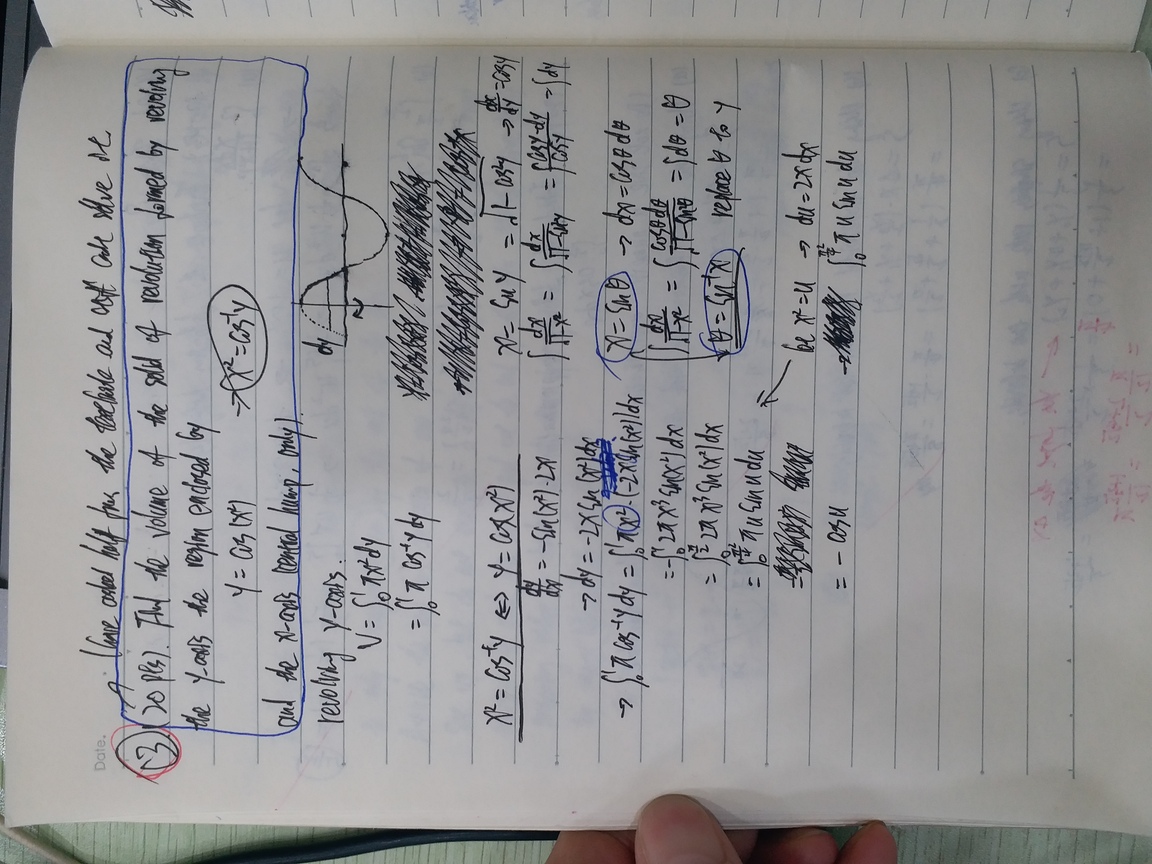 Date.
I have asked half from the and can't solve it
13 (20 pts). Find the volume of the solid of revolution formed by revolving
the y-axis the region enclosed by
y = cos(x²) → x² = cos⁻¹y
and the x-axis (central hump, only).
revolving y-axis.
dy
V = ∫₀¹ πx² dy
= ∫₀¹ π cos⁻¹y dy
x² = cos⁻¹y ⇔ y = cos(x²)
dy/dx = -sin(x²)·2x
→ dy = -2x sin(x²)dx
→ ∫₀¹ π cos⁻¹y dy = ∫₀¹ πx²·(-2x sin(x²))dx
= -∫₀¹ 2πx³ sin(x²)dx
= ∫₀^(π/2) 2πx³ sin(x²)dx
= ∫₀^(π²/4) πu sin u du
= - cos u
x = sin y = √(1-cos²y) → dx/dy = cos y
∫ dx/√(1-x²) = ∫ dx/√(1-sin²y) = ∫ cos y·dy/cos y = ∫dy
x = sin θ → dx = cos θ dθ
∫ dx/√(1-x²) = ∫ cos θ dθ/√(1-sin²θ) = ∫dθ = θ
θ = sin⁻¹x replace θ to y
be x² = u → du = 2x dx
→ ∫₀^(π²/4) π u sin u du